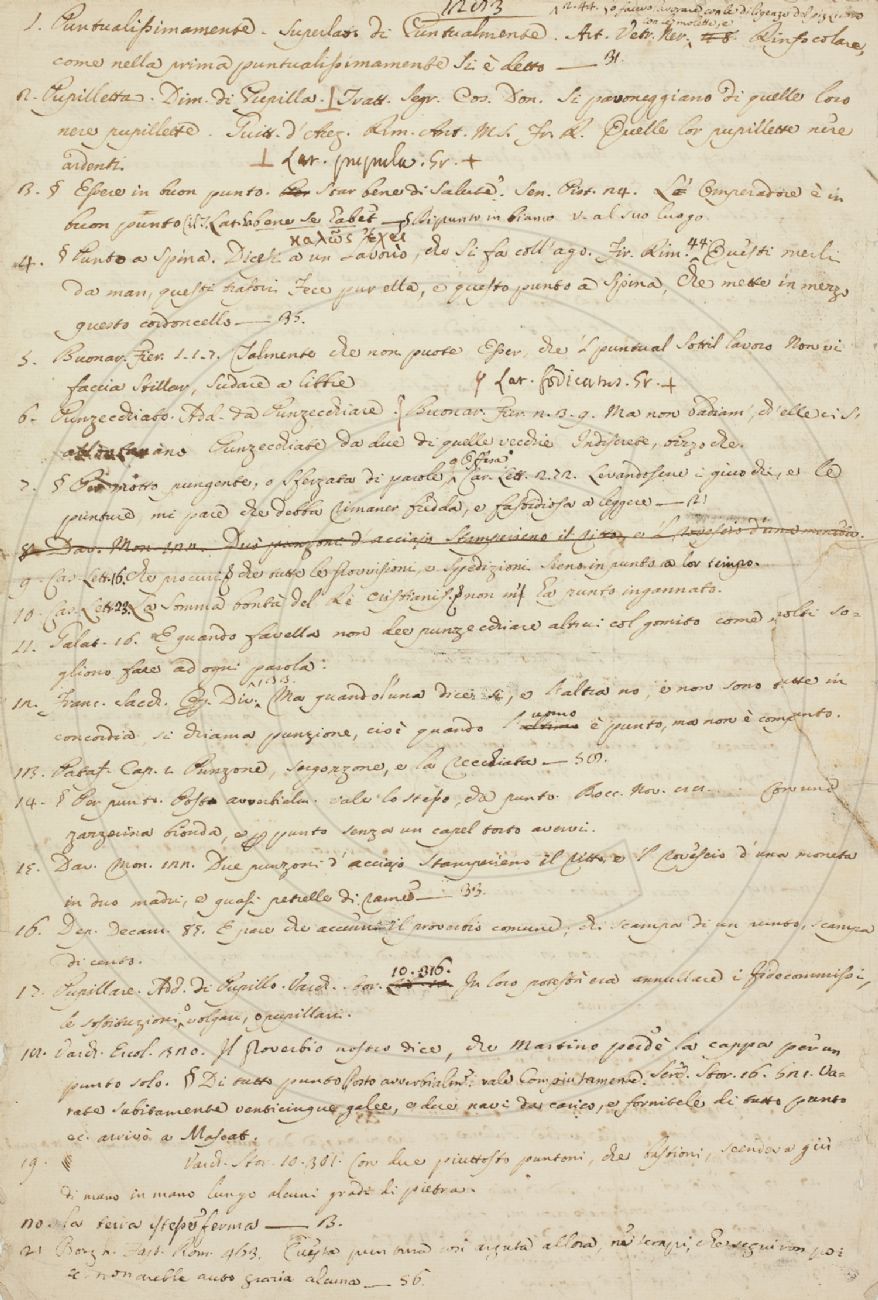 1. Puntualissimamente. Superlat. di Puntualmente. Art. Vetr. Ner. Rinfocolare,
come nella prima puntualissimamente si è detto — 31.
2. Pupilletta. Dim. di Pupilla. Tratt. Segr. Cos. Don. Si pavoneggiano di quelle loro
nere pupillette. Guitt. d'Arez. Rim. Ant. MS. Fr. R. Quelle lor pupillette nere
ardenti. ⊥ Lat. pupula. Gr. +
3. § Essere in buon punto. Star bene di salute. Sen. Pist. 24. Lo 'mperadore è in
buon punto Lat. bene se habet — § Di punto in bianco v. al suo luogo.
καλῶς ἔχει
4. § Punto a spina. Dicesi a un lavoro, che si fa coll'ago. Fr. Rim. 44 Questi merli
da man, questi trafori Fece pur ella, e questo punto a spina, Che mette in mezzo
questo cordoncello — 35.
5. Buonar. Fier. 1. 1. 7. Talmente che non puote Esser, che 'l puntual sottil lavoro Non vi
faccia stillar, sudare a libbre Lat. fodicatus. Gr. +
6. Punzecchiato. Add. da Punzecchiare. Buonar. Fier. 2. 3. 9. Ma non badiam, ch'elle ci s.
Punzecchiate da due di quelle vecchie Indiscrete, bizzoche.
7. § Per motto pungente, o sferzata di parole o Offesa Car. Lett. 2. 72. Levandosene i giuochi, e le
punture, mi pare che debba rimaner fredda, e fastidiosa a leggere — 21
8. Dav. Mon. 122. Due punzoni d'acciajo stamperieno il ritto, e 'l rovescio d'una moneta.
9. Cas. Lett. 16. Che procuri, che tutte le provvisioni, e spedizioni sieno in punto a lor tempo.
10. Cas. Lett. 23. La somma bontà del Re Cristianiss. non m' ha punto ingannato.
11. Galat. 16. E quando favella non dee punzecchiare altrui col gomito come molti so-
gliono fare ad ogni parola.
12. Franc. Sacch. Op. Div. Ma quando l'una dice sì, e l'altra no, e non sono tutte in
concordia, si chiama punzione, cioè quando l' uomo è punto, ma non è compunto.
13. Pataf. Cap. 1. Punzone, sergozzone, e la recchiata — 50.
14. § Per punto. Posto avverbialm. vale lo stesso, che punto. Bocc. Nov. Con una
zazzerina bionda, e per punto senza un capel torto avervi.
15. Dav. Mon. 122. Due punzoni d'acciajo stamperieno il ritto, e 'l rovescio d'una moneta
in duo madri, e quasi petrelle di rame — 33.
16. Dep. Decam. 88. E pare che accenni il proverbio comune, chi scampa di un punto, scampa
di cento.
17. Pupillare. Add. di Pupillo. Varch. Stor. 10. 316. In loro potestà era annullare i fidecommissi,
le sostituzioni o volgari, o pupillari.
18. Varch. Ercol. 320. Il Proverbio nostro dice, che Martino perdè la cappa per un
punto solo. § Di tutto punto Posto avverbialm. vale Compiutamente. Serd. Stor. 16. 621. Va-
rate subitamente venticinque galee, e due navi da carico, e fornitele di tutto punto
ec. arrivò a Mascat.
19. Varch. Stor. 10. 301. Con due piuttosto puntoni, che bastioni, scendeva giù
di mano in mano lungo alcuni gradi di pietra.
20. la terra stesse ferma — 13.
21 Borgh. Fast. Rom. 463. Questa puntura così arguta allora, ne' tempi, che seguiron po-
i non arebbe auto grazia alcuna — 56.